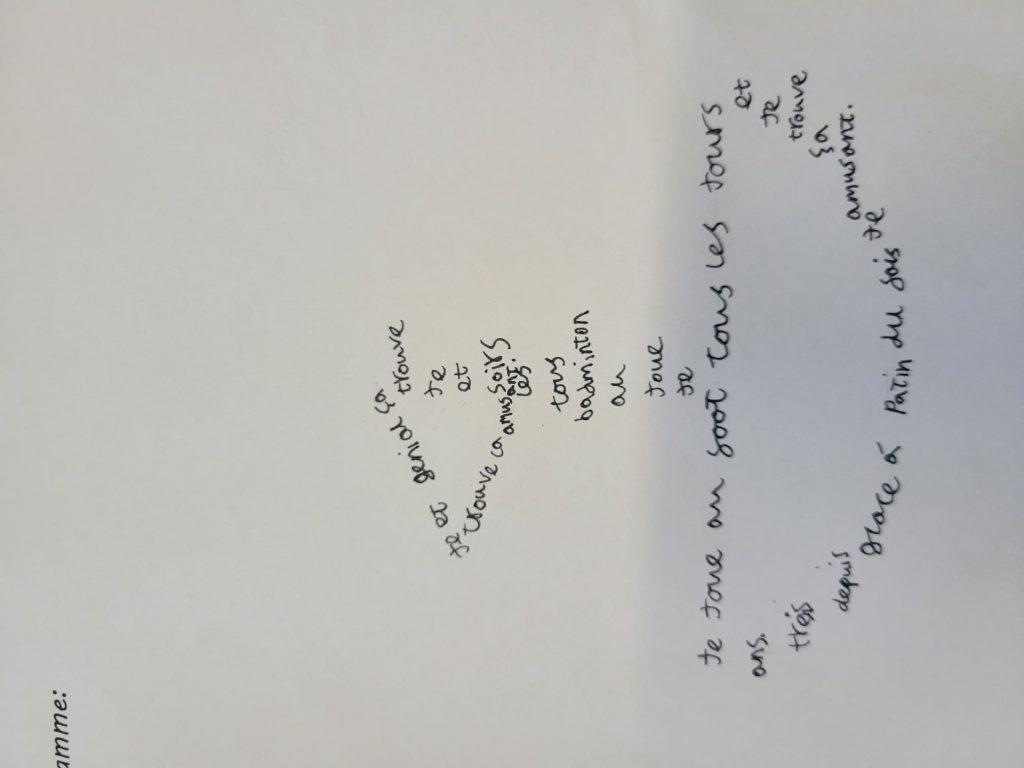 amme:
je
joue
au
badminton
tous
les
soirs
et
je
trouve
ça
génial
et
je
trouve ça
amusant.
je joue au foot tous les jours
et
je
trouve
ça
amusant.
je
fais du Patin à glace
depuis
très
ans.